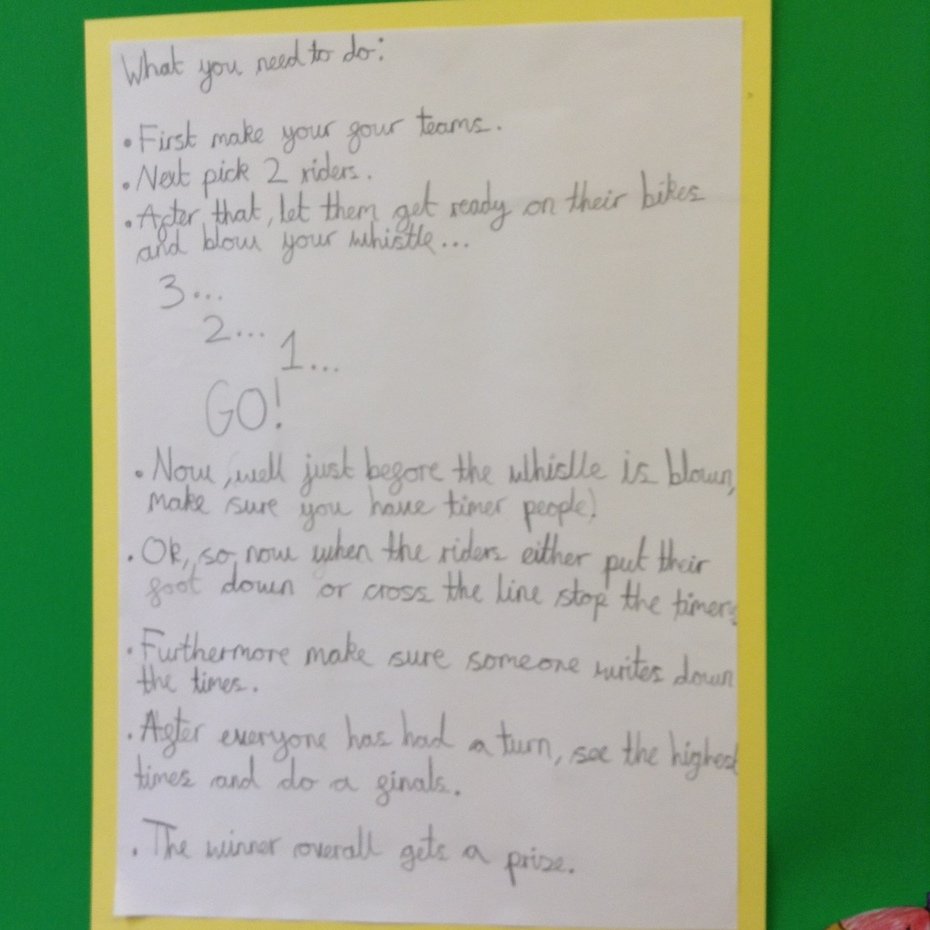 What you need to do:
• First make your four teams.
• Next pick 2 riders.
• After that, let them get ready on their bikes
and blow your whistle...
3...
2...
1...
GO!
• Now, well just before the whistle is blown,
make sure you have timer people!
• Ok, so now when the riders either put their
foot down or cross the line stop the timers.
• Furthermore make sure someone writes down
the times.
• After everyone has had a turn, see the highest
times and do a finals.
• The winner overall gets a prize.